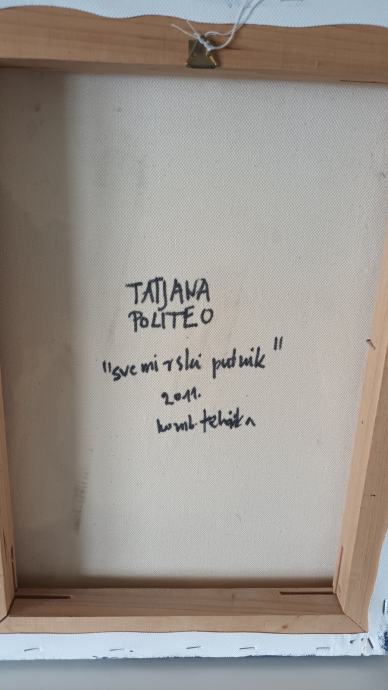 TATJANA
POLITEO
"svemirski putnik"
2011.
komb. tehnika